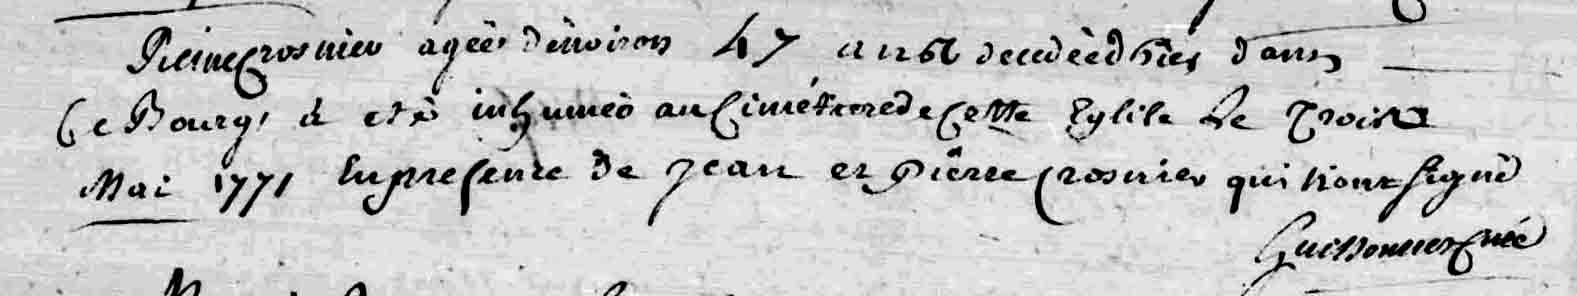 Reine Crosnier agée d'environ 47 ans decedée d'hier dans
Ce Bourg, a eté inhumée au Cimétiere de Cette Eglise Le Trois
Mai 1771 En presence de Jean et Piérre Crosnier qui n'ont signé
Curé